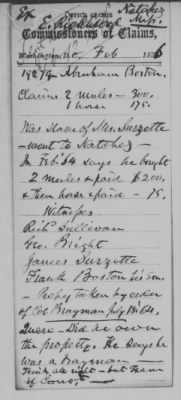 Ex Natchez
E. Miss.
OFFICE OF THE
Commissioners of Claims,
Washington, Feb 1876
18279 Abraham Boston.
Claims 2 mules – 300.
1 horse 175.
Was Slave of Mrs. Surgette
– went to Natchez –
In Feb '64 says he bought
2 mules & paid $200,
& then horse & paid – 75.
Witnesses
Richd Sullivan
Geo. Bright
James Surgette
Frank Boston his Son.
– Propy taken by order
of Col Brayman July
– Did he own
the property. He says he
was a Drayman –
Think all right – but